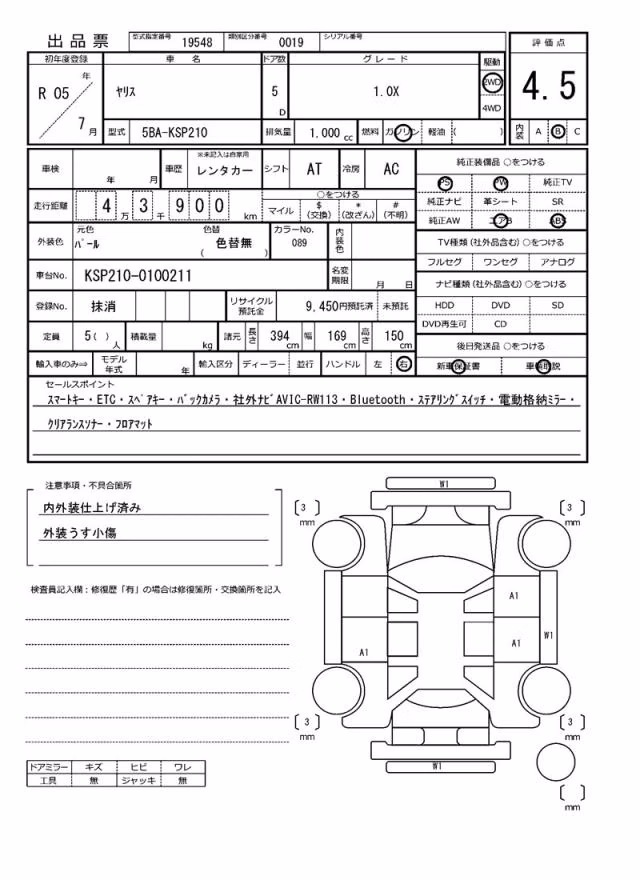 出品票 型式指定番号 19548 類別区分番号 0019 シリアル番号
初年度登録 車名 ドア数 グレード 駆動 評価点
R 05 年 7 月 ヤリス 5 D 1.0X 2WD 4WD 4.5
型式 5BA-KSP210 排気量 1.000 cc 燃料 ガソリン 軽油 ( ) 内装 A B C
車検 年 月 車歴 ※未記入は自家用 レンタカー シフト AT 冷房 AC
走行距離 4 万 3 千 9 0 0 km ○をつける
マイル $(交換) *(改ざん) #(不明)
外装色 元色 パール 色替 ( 色替無 ) カラーNo. 089 内装色
車台No. KSP210-0100211 名変期限 月 日
登録No. 抹消 リサイクル預託金 9,450円預託済 未預託
定員 5( ) 人 積載量 kg 諸元 長さ 394 cm 幅 169 cm 高さ 150 cm
輸入車のみ⇒ モデル年式 年 輸入区分 ディーラー 並行 ハンドル 左 右
純正装備品 ○をつける
PS PW 純正TV
純正ナビ 革シート SR
純正AW エアB ABS
TV種類(社外品含む)○をつける
フルセグ ワンセグ アナログ
ナビ種類(社外品含む)○をつける
HDD DVD SD
DVD再生可 CD
後日発送品 ○をつける
新車保証書 車輌取説
セールスポイント
スマートキー・ETC・スペアキー・バックカメラ・社外ナビAVIC-RW113・Bluetooth・ステアリングスイッチ・電動格納ミラー・
クリアランスソナー・フロアマット
注意事項・不具合箇所
内外装仕上げ済み
外装うす小傷
検査員記入欄：修復歴「有」の場合は修復箇所・交換箇所を記入
ドアミラー キズ ヒビ ワレ
工具 無 ジャッキ 無
W1
3 mm
3 mm
A1
A1
A1
W1
3 mm
3 mm
W1
mm